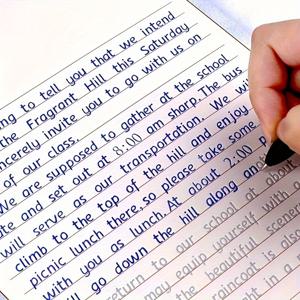 ng to tell you that we intend
the Fragrant Hill this Saturday
ncerely invite you to go with us on
of our class.
We are supposed to gather at the school
te and set out at 8:00 am sharp. The bus
will serve as our transportation. We wi
climb to the top of the hill and enjoy
picnic lunch there, so please take some
with you as lunch. At about 2:00 p
ll go down the hill along an
return to our school at abou
may equip yourself with a
the beautiful scenes
raincoat is also
ht in a